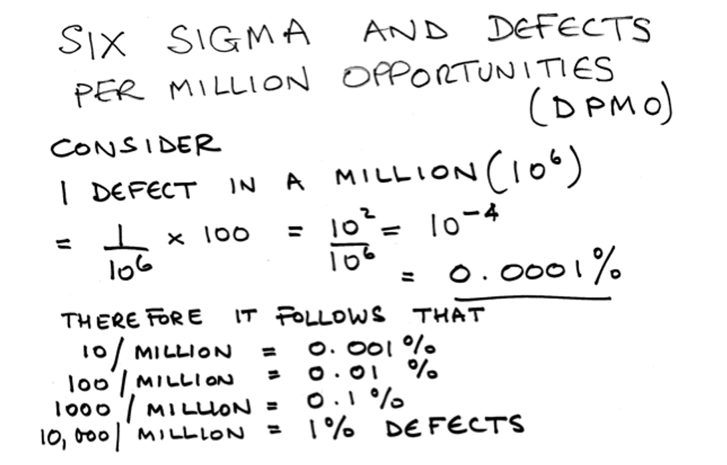 SIX SIGMA AND DEFECTS
PER MILLION OPPORTUNITIES
(DPMO)
CONSIDER
1 DEFECT IN A MILLION (10⁶)
= 1/10⁶ × 100 = 10²/10⁶ = 10⁻⁴
= 0.0001%
THEREFORE IT FOLLOWS THAT
10/MILLION = 0.001%
100/MILLION = 0.01 %
1000/MILLION = 0.1%
10,000/MILLION = 1% DEFECTS